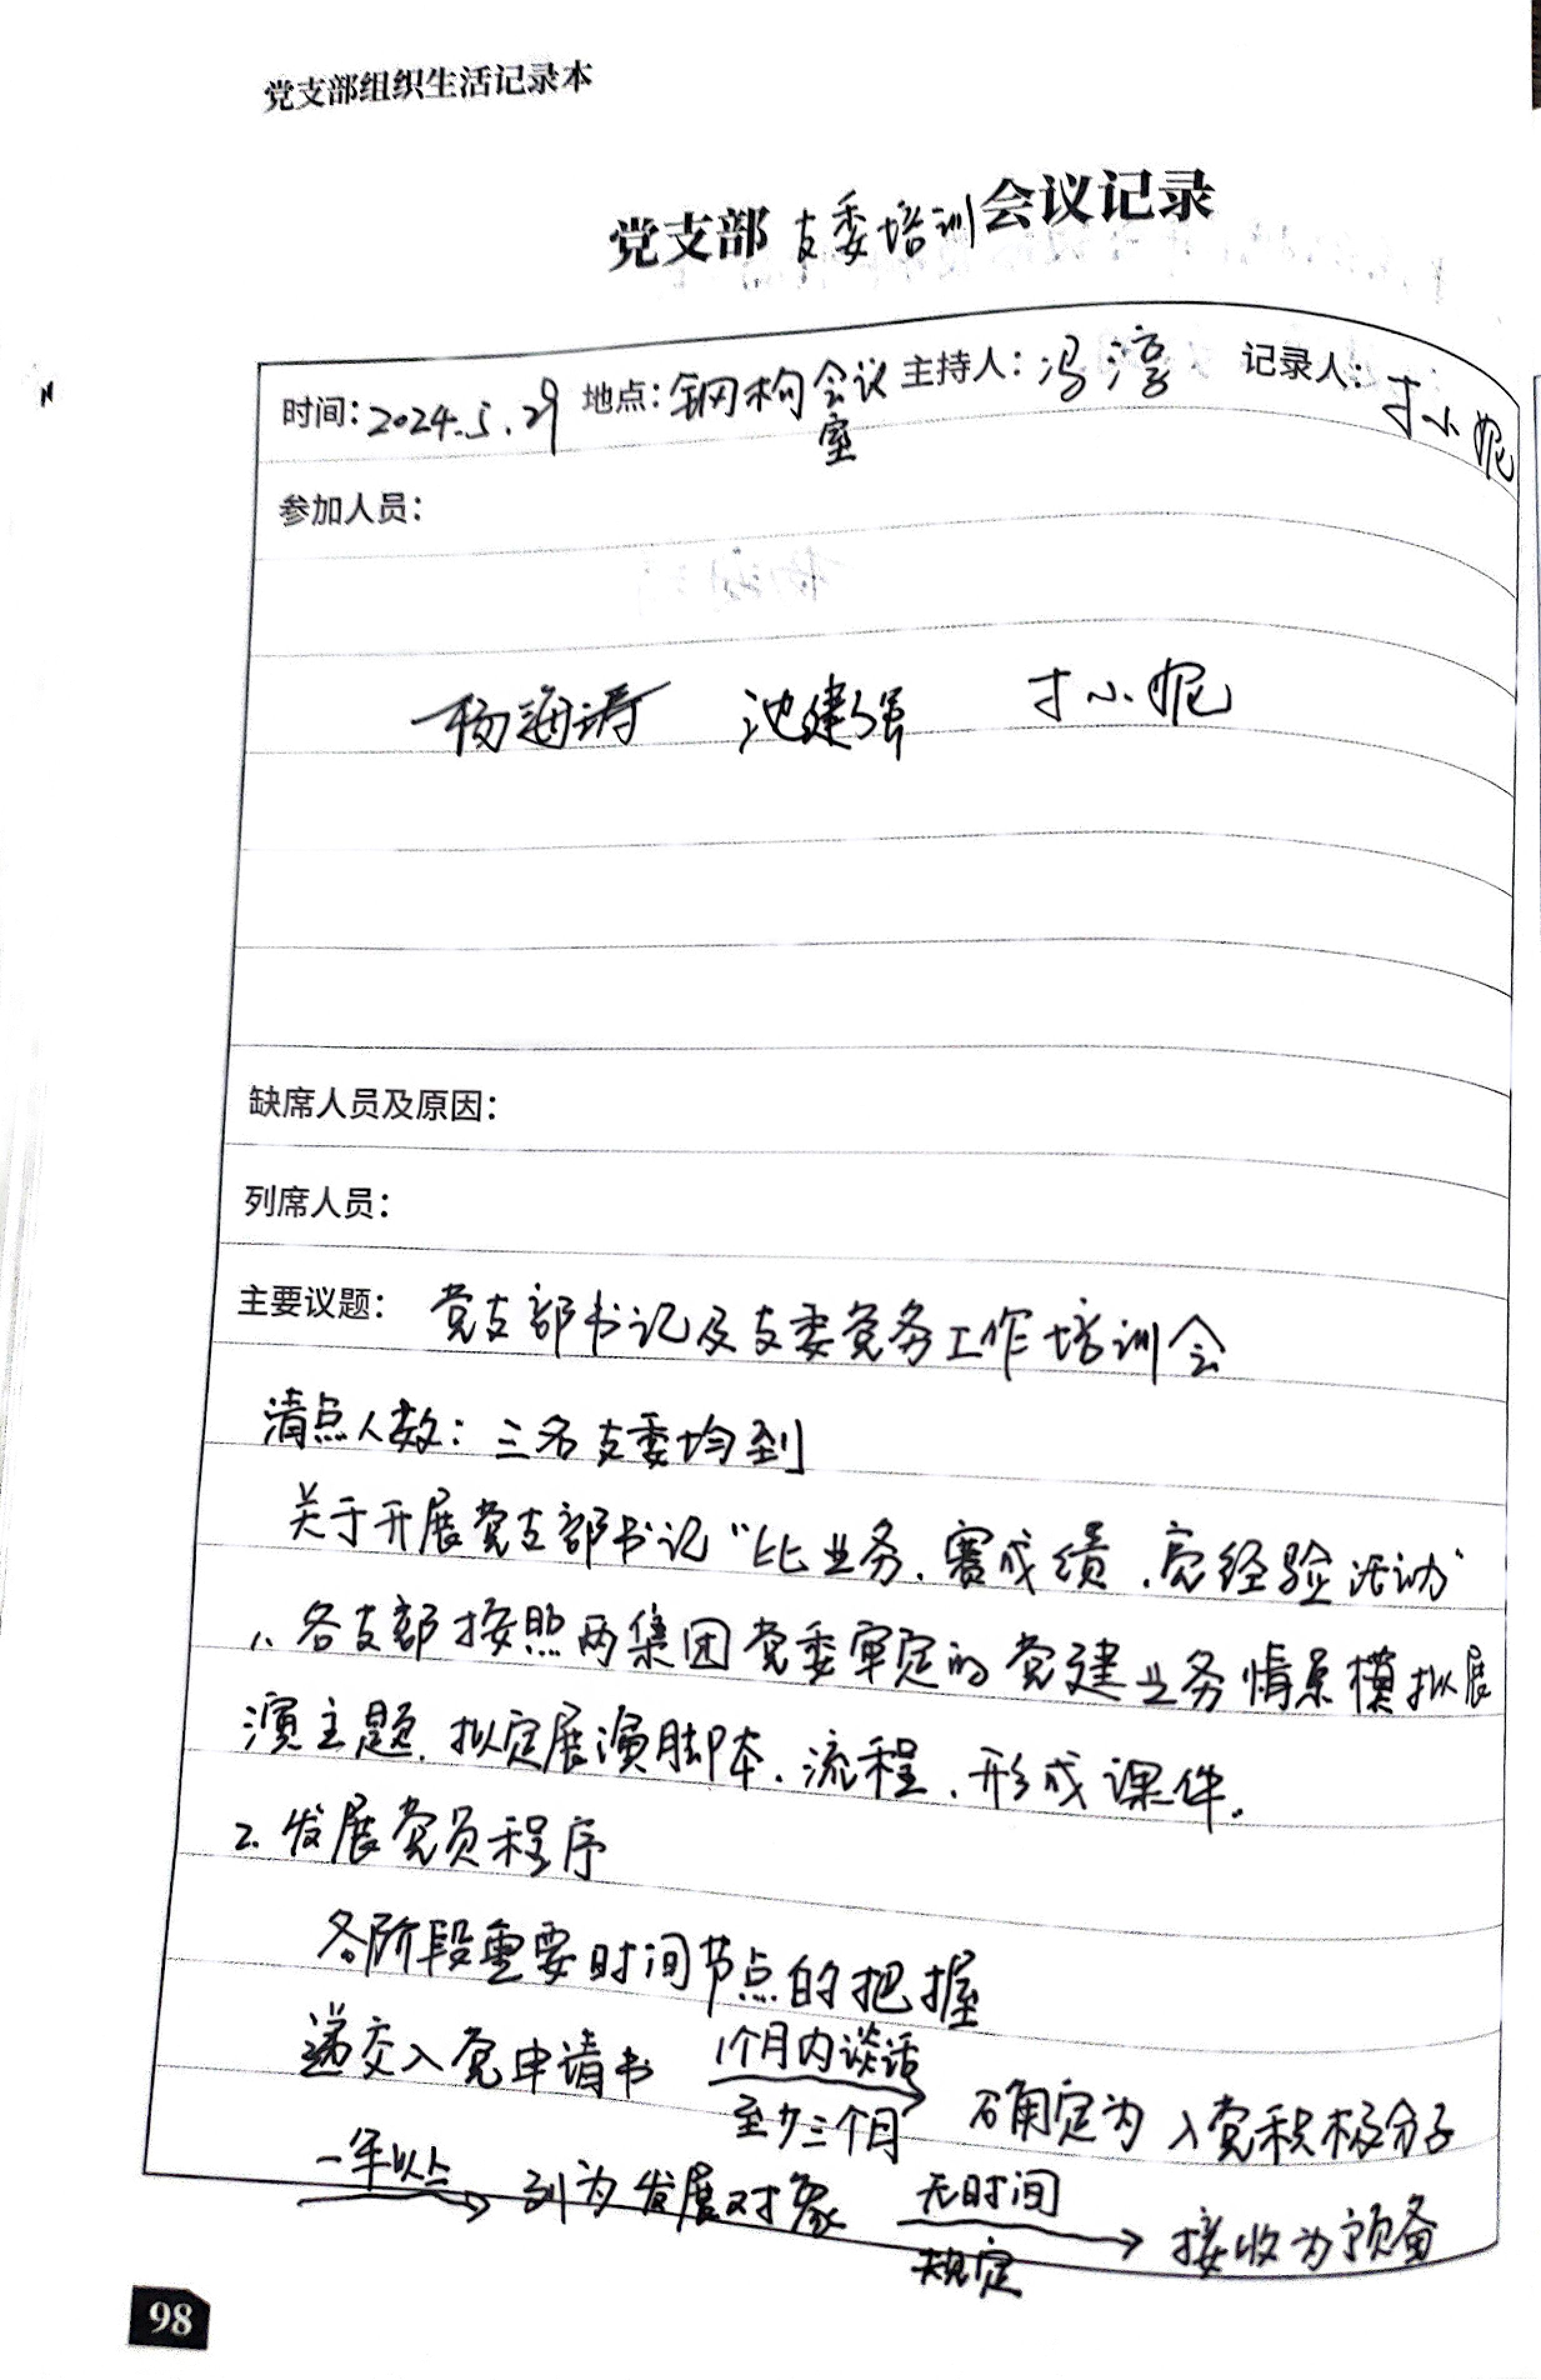 党支部组织生活记录本
党支部 支委培训 会议记录
时间：2024.5.29 地点：钢构会议室 主持人：冯淳 记录人：才小妮
参加人员：
杨海涛 池建强 才小妮
缺席人员及原因：
列席人员：
主要议题：党支部书记及支委党务工作培训会
清点人数：三名支委均到
关于开展党支部书记“比业务、赛成绩、亮经验活动”
1、各支部按照两集团党委审定的党建业务情景模拟展
演主题，拟定展演脚本、流程、形成课件。
2. 发展党员程序
各阶段重要时间节点的把握
递交入党申请书 1个月内谈话 至少三个月 确定为入党积极分子
一年以上 列为发展对象 无时间规定 接收为预备
98